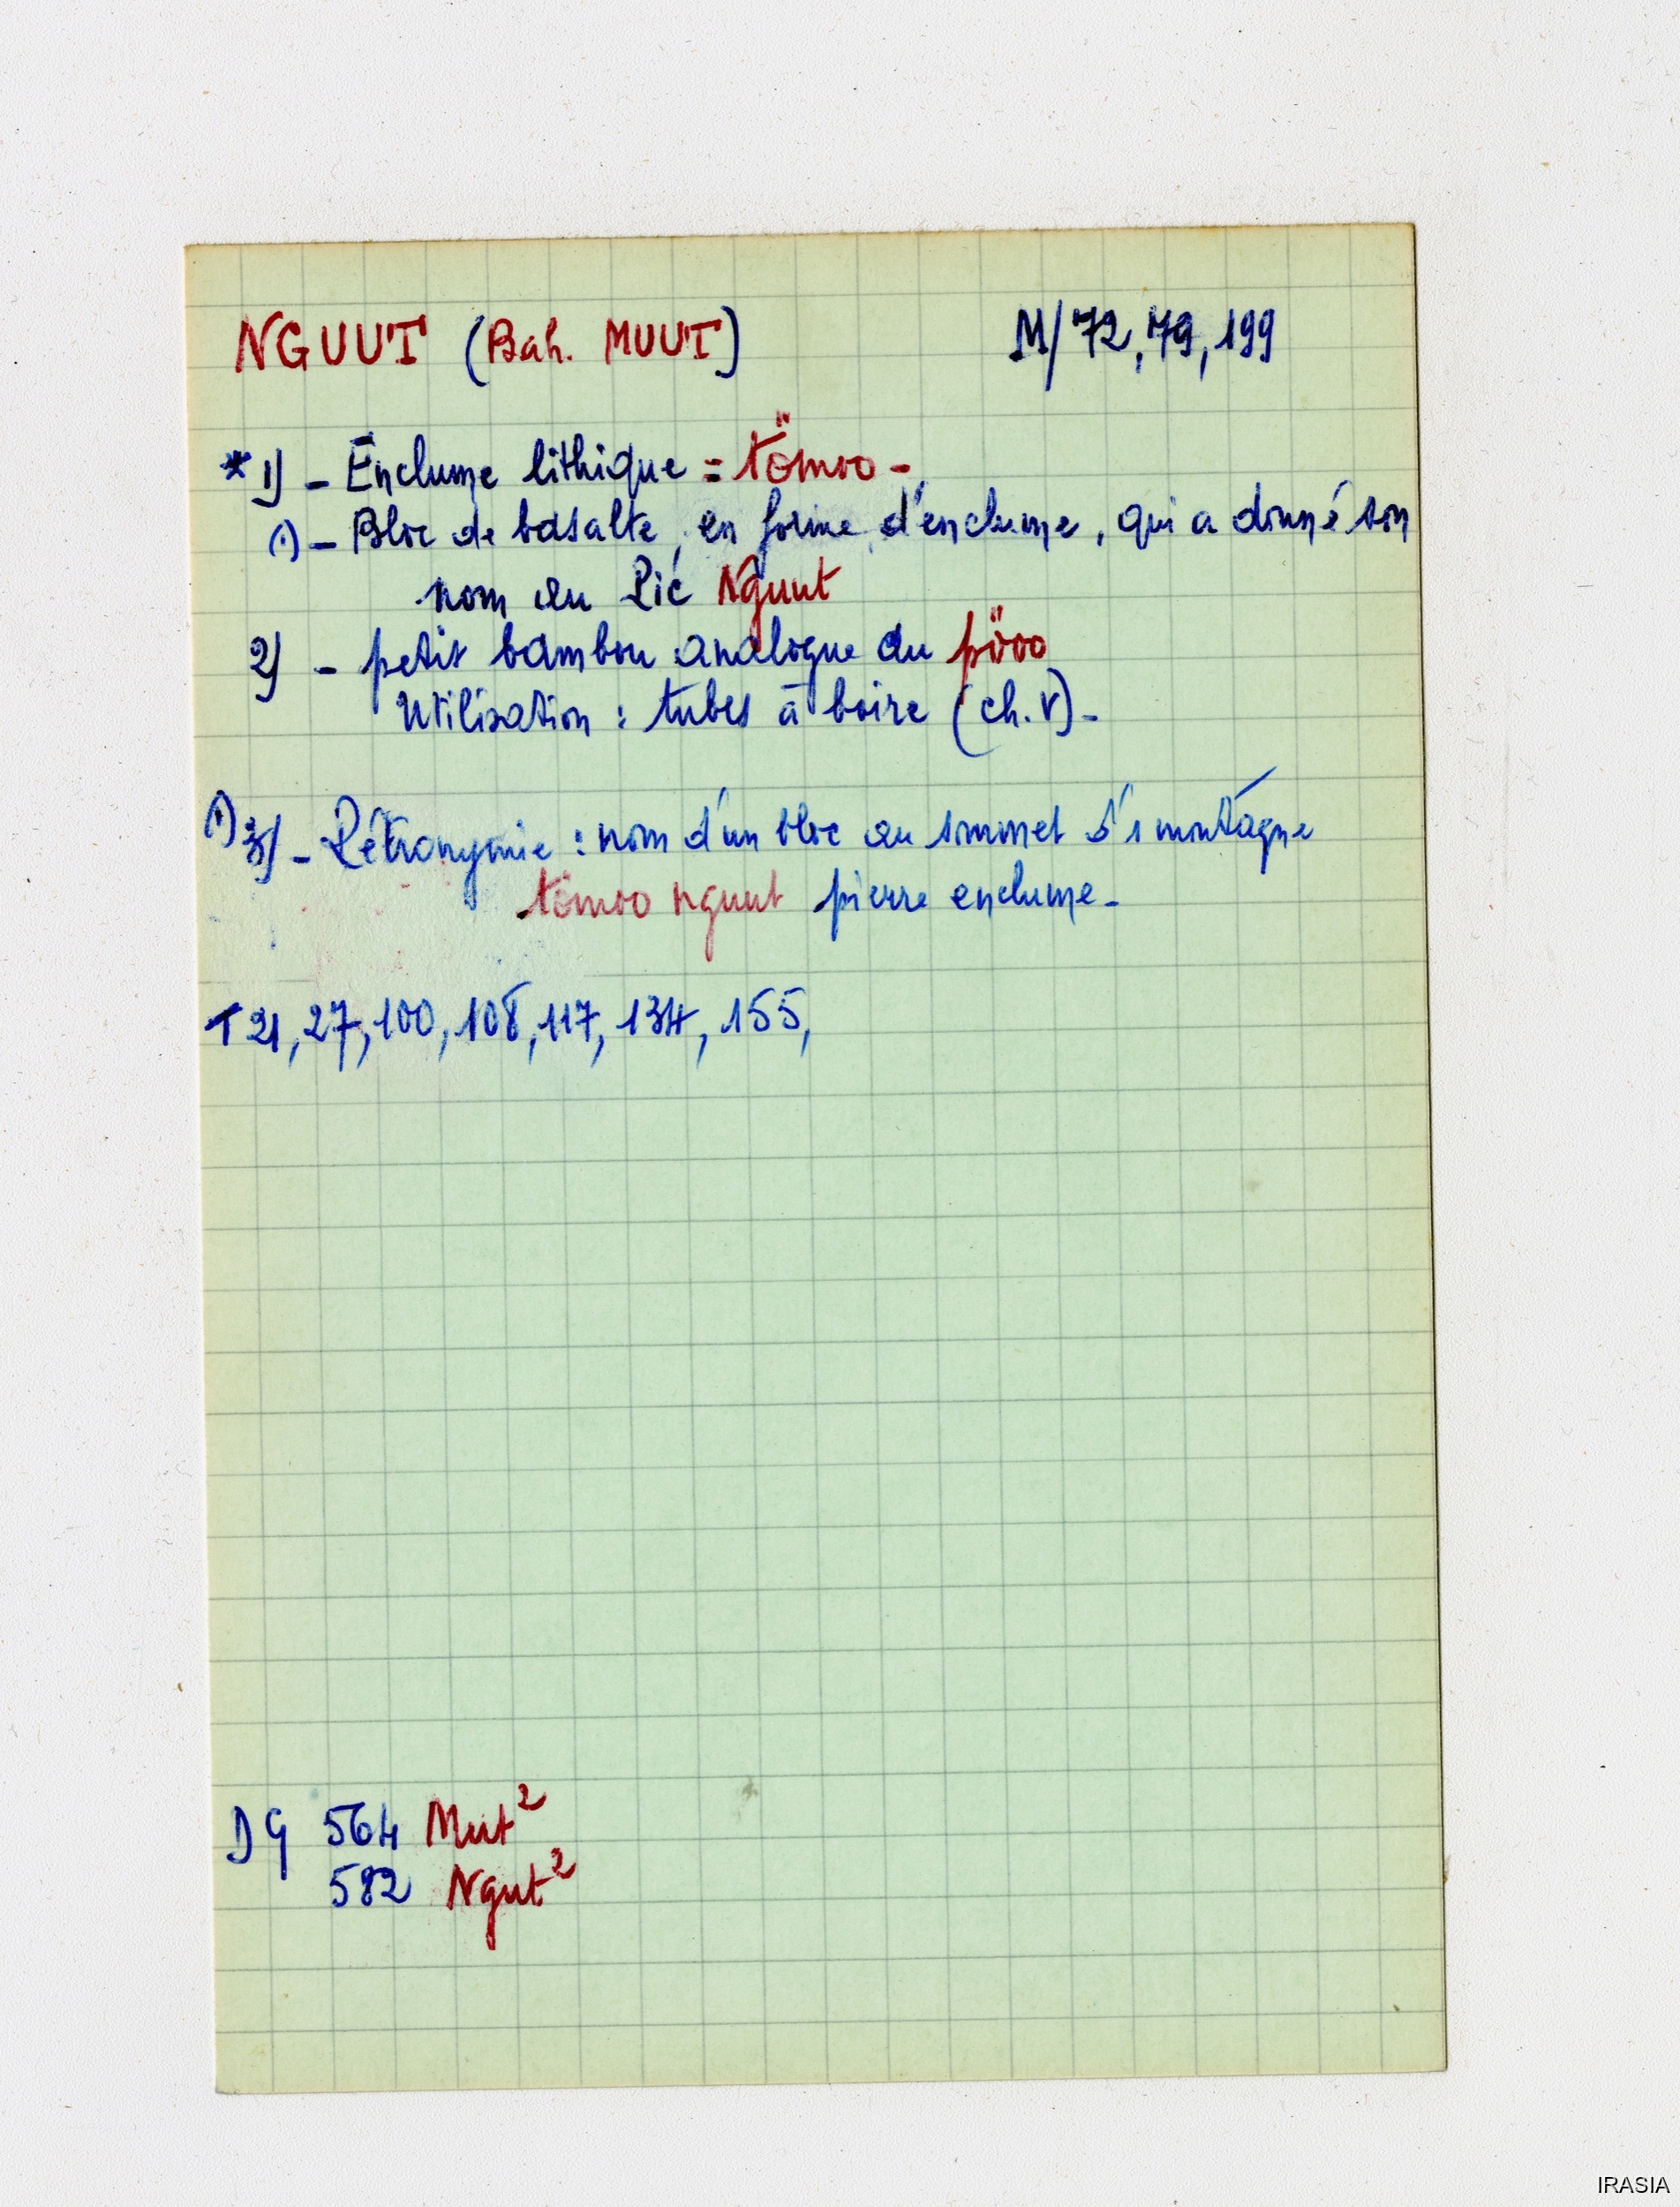 NGUUT (Bah. MUUT) M/72, 79, 199
* 1) - Enclume lithique = tömoo -
1) - Bloc de basalte, en forme d'enclume, qui a donné son
nom au Pic Nguut
2) - petit bambou analogue au pöoo
Utilisation : tubes à boire (ch. V) -
1) 3) - : nom d'un bloc au sommet d'1 montagne
tömoo nguut pierre enclume -
T 21, 27, 100, 108, 117, 134, 155,
DG 564 Mut²
582 Ngut²
IRASIA